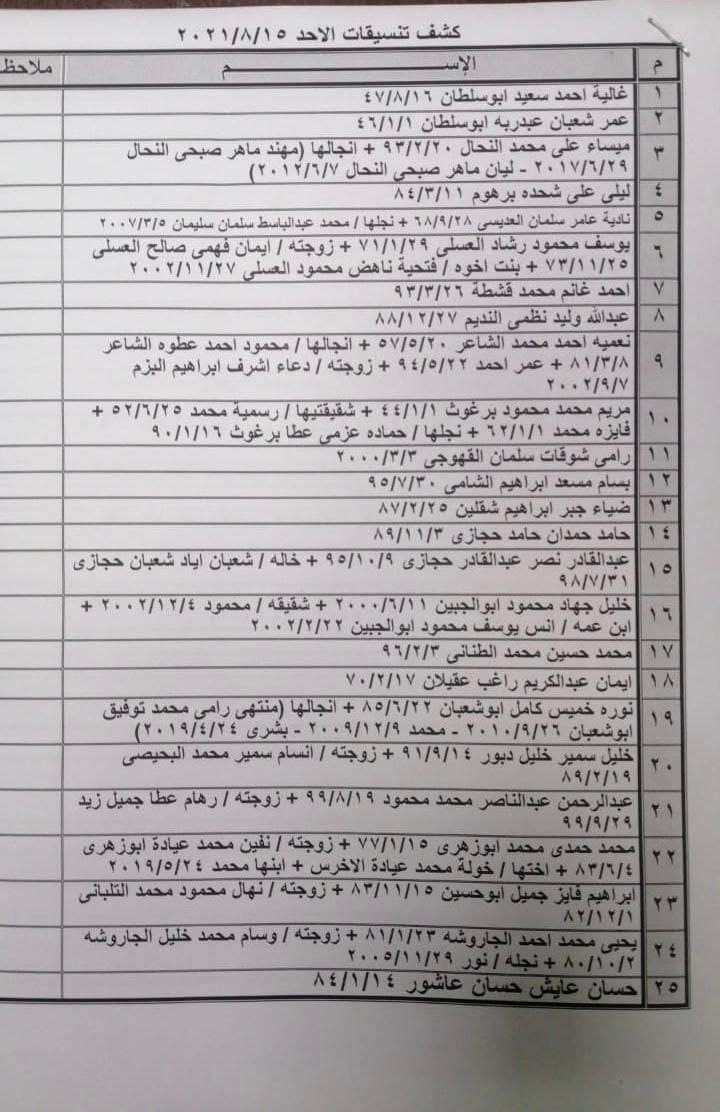 كشف تنسيقات الاحد ٢٠٢١/٨/١٥
م الإســـــــم ملاحظ
١ غالية احمد سعيد ابوسلطان ٤٧/٨/١٦
٢ عمر شعبان عبدربه ابوسلطان ٤٦/١/١
٣ ميساء على محمد النحال ٩٣/٢/٢٠ + انجالها (مهند ماهر صبحى النحال
٢٠١٧/٦/٢٩ - ليان ماهر صبحى النحال ٢٠١٢/٦/٧)
٤ ليلى على شحده برهوم ٨٤/٣/١١
٥ نادية عامر سلمان العديسى ٦٨/٩/٢٨ + نجلها / محمد عبدالباسط سلمان سليمان ٢٠٠٧/٣/٥
٦ يوسف محمود رشاد العسلى ٧١/١/٢٩ + زوجته / ايمان فهمى صالح العسلى
٧٣/١١/٢٥ + بنت اخوه / فتحية ناهض محمود العسلى ٢٠٠٢/١١/٢٧
٧ احمد غانم محمد قشطة ٩٣/٣/٢٦
٨ عبدالله وليد نظمى النديم ٨٨/١٢/٢٧
٩ نعميه احمد محمد الشاعر ٥٧/٥/٢٠ + انجالها / محمود احمد عطوه الشاعر
٨١/٣/٨ + عمر احمد ٩٤/٥/٢٢ + زوجته / دعاء اشرف ابراهيم البزم
٢٠٠٢/٩/٧
١٠ مريم محمد محمود برغوث ٤٤/١/١ + شقيقتيها / رسمية محمد ٥٢/٦/٢٥ +
فايزه محمد ٦٢/١/١ + نجلها / حماده عزمى عطا برغوث ٩٠/١/١٦
١١ رامى شوقات سلمان القهوجى ٢٠٠٠/٣/٣
١٢ بسام مسعد ابراهيم الشامى ٩٥/٧/٣٠
١٣ ضياء جبر ابراهيم شقلين ٨٧/٢/٢٥
١٤ حامد حمدان حامد حجازى ٨٩/١١/٣
١٥ عبدالقادر نصر عبدالقادر حجازى ٩٥/١٠/٩ + خاله / شعبان اياد شعبان حجازى
٩٨/٧/٣١
١٦ خليل جهاد محمود ابوالجبين ٢٠٠٠/٦/١١ + شقيقه / محمود ٢٠٠٢/١٢/٤ +
ابن عمه / انس يوسف محمود ابوالجبين ٢٠٠٢/٢/٢٢
١٧ محمد حسين محمد الطنانى ٩٦/٢/٣
١٨ ايمان عبدالكريم راغب عقيلان ٧٠/٢/١٧
١٩ نوره خميس كامل ابوشعبان ٨٥/٦/٢٢ + انجالها (منتهى رامى محمد توفيق
ابوشعبان ٢٠١٠/٩/٢٦ - محمد ٢٠٠٩/١٢/٩ - بشرى ٢٠١٩/٤/٢٤)
٢٠ خليل سمير خليل دبور ٩١/٩/١٤ + زوجته / انسام سمير محمد البحيصى
٨٩/٢/١٩
٢١ عبدالرحمن عبدالناصر محمد محمود ٩٩/٨/١٩ + زوجته / رهام عطا جميل زيد
٩٩/٩/٢٩
٢٢ محمد حمدى محمد ابوزهرى ٧٧/١/١٥ + زوجته / نفين محمد عيادة ابوزهرى
٨٣/٦/٤ + اختها / خولة محمد عيادة الاخرس + ابنها محمد ٢٠١٩/٥/٢٤
٢٣ ابراهيم فايز جميل ابوحسين ٨٣/١١/١٥ + زوجته / نهال محمود محمد التلبانى
٨٢/١٢/١
٢٤ يحيى محمد احمد الجاروشه ٨١/١/٢٣ + زوجته / وسام محمد خليل الجاروشه
٨٠/١٠/٢ + نجله / نور ٢٠٠٥/١١/٢٩
٢٥ حسان عايش حسان عاشور ٨٤/١/١٤